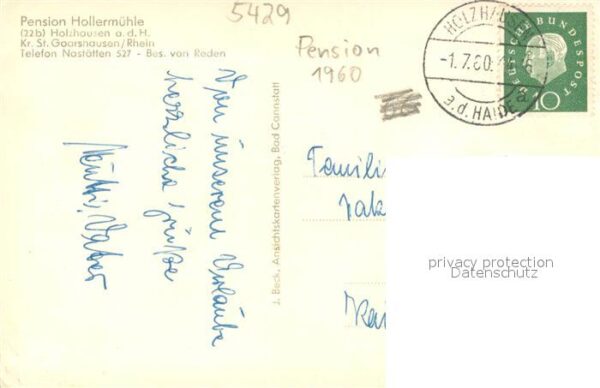 Pension Hollermühle
(22b) Holzhausen a. d. H.
Kr. St. Goarshausen/Rhein
Telefon Nastätten 527 - Bes. von Reden
5429
Pension
1960
HOLZHAUSEN
-1.7.60.
a
a.d. HAIDE
DEUTSCHE BUNDESPOST
10
Von unserem Urlaube
herzliche Grüße
J. Beck, Ansichtskartenverlag, Bad Cannstatt
Famili
privacy protection
Datenschutz